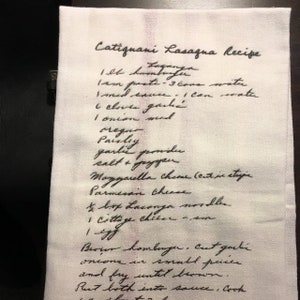 Catignani Lasagna Recipe
Lasagna
1 lb hamburger
1 sm paste - 3 cans water
1 med sauce - 1 can water
6 clove garlic
1 onion med
oregno
Paisley
garlic powder
salt & pepper
Mozzarella cheese (cut in strips
Parmesan Cheese
½ box Lasagna noodles
1 Cottage cheese - sm
1 egg
Brown hamburger. Cut garlic
onions in small pieces
and fry until brown.
Put both into sauce. Cook